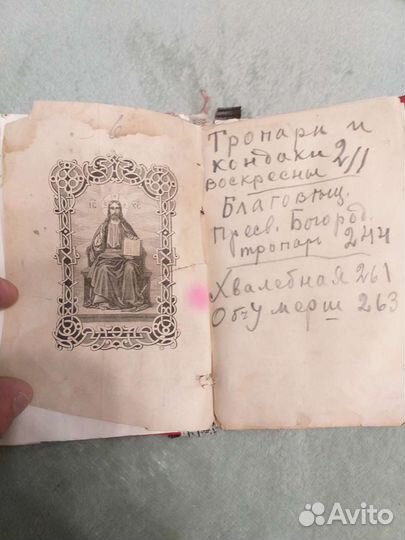 IC XC
Тропари и
кондаки 211
воскресны
Благовещ.
Пресв. Богород.
тропарь 244
Хвалебная 261
Об умерш 263
Avito